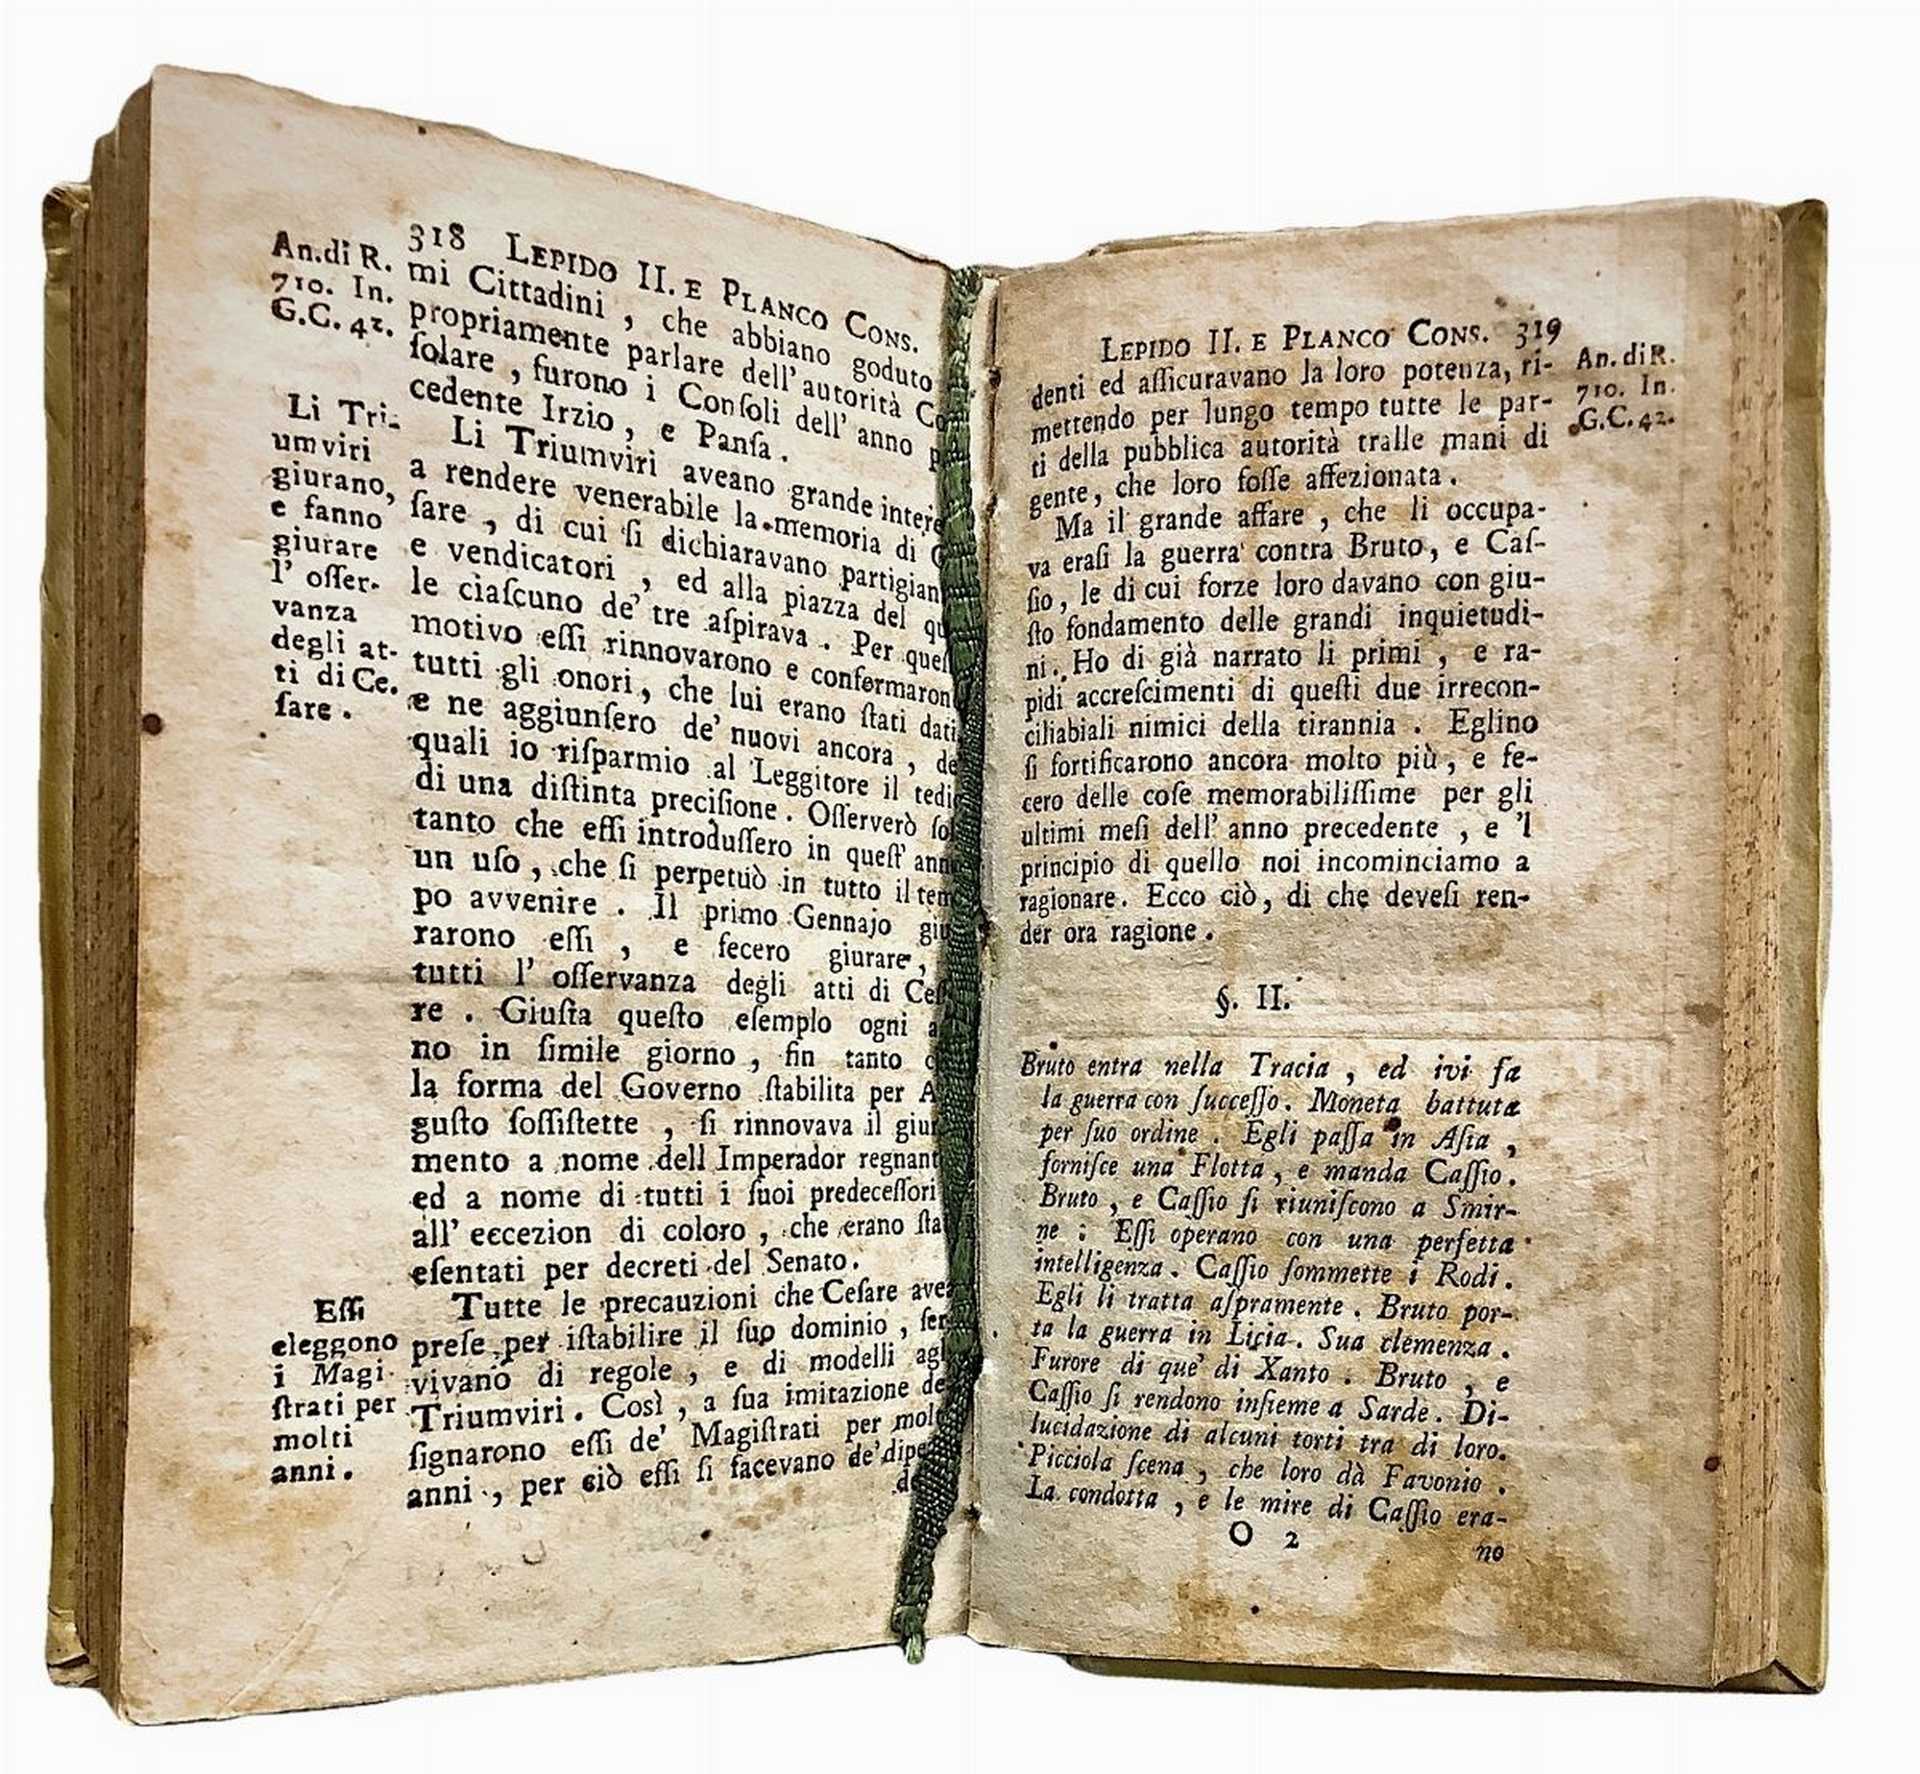 An. di R.
710. In.
G.C. 42.
318 LEPIDO II. E PLANCO CONS.
mi Cittadini , che abbiano goduto
propriamente parlare dell' autorità Co
ſolare , furono i Conſoli dell' anno p
cedente Irzio , e Panſa .
Li Tri-
umviri
giurano,
e fanno
giurare
l' oſſer-
vanza
degli at-
ti di Ce-
ſare .
Li Triumviri aveano grande intere
a rendere venerabile la memoria di C
ſare , di cui ſi dichiaravano partigian
e vendicatori , ed alla piazza del qu
le ciaſcuno de' tre aſpirava . Per queſ
motivo eſſi rinnovarono e confermaron
tutti gli onori, che lui erano ſtati dati
e ne aggiunſero de' nuovi ancora , de
quali io riſparmio al Leggitore il tedi
di una diſtinta preciſione. Oſſerverò ſol
tanto che eſſi introduſſero in queſt' ann
un uſo , che ſi perpetuò in tutto il tem
po avvenire . Il primo Gennajo giu
rarono eſſi , e fecero giurare ,
tutti l' oſſervanza degli atti di Ceſ
re . Giuſta queſto eſempio ogni a
no in ſimile giorno , fin tanto c
la forma del Governo ſtabilita per A
guſto ſoſſiſtette , ſi rinnovava il giur
mento a nome dell Imperador regnant
ed a nome di tutti i ſuoi predeceſſori
all' eccezion di coloro , che erano ſta
eſentati per decreti del Senato.
Eſſi
eleggono
i Magi-
ſtrati per
molti
anni .
Tutte le precauzioni che Ceſare ave
preſe per iſtabilire il ſuo dominio , ſer
vivano di regole , e di modelli ag
Triumviri . Così , a ſua imitazione de
ſignarono eſſi de' Magiſtrati per mol
anni , per ciò eſſi ſi facevano de' dipe
de
LEPIDO II. E PLANCO CONS. 319
An. di R.
710. In.
G.C. 42.
denti ed aſſicuravano la loro potenza, ri-
mettendo per lungo tempo tutte le par-
ti della pubblica autorità tralle mani di
gente, che loro foſſe affezionata .
Ma il grande affare , che li occupa-
va eraſi la guerra contra Bruto, e Caſ-
ſio, le di cui forze loro davano con giu-
ſto fondamento delle grandi inquietudi-
ni . Ho di già narrato li primi , e ra-
pidi accreſcimenti di queſti due irrecon-
ciliabiali nimici della tirannia . Eglino
ſi fortificarono ancora molto più , e fe-
cero delle coſe memorabiliſſime per gli
ultimi meſi dell' anno precedente , e 'l
principio di quello noi incominciamo a
ragionare. Ecco ciò, di che deveſi ren-
der ora ragione .
§. II.
Bruto entra nella Tracia , ed ivi fa
la guerra con ſucceſſo. Moneta battuta
per ſuo ordine . Egli paſſa in Aſia ,
forniſce una Flotta , e manda Caſſio.
Bruto , e Caſſio ſi riuniſcono a Smir-
ne : Eſſi operano con una perfetta
intelligenza . Caſſio ſommette i Rodi .
Egli li tratta aſpramente . Bruto por-
ta la guerra in Licia. Sua clemenza .
Furore di que' di Xanto . Bruto , e
Caſſio ſi rendono inſieme a Sarde. Di-
lucidazione di alcuni torti tra di loro.
Picciola ſcena , che loro dà Favonio .
La condotta , e le mire di Caſſio era-
O 2
no